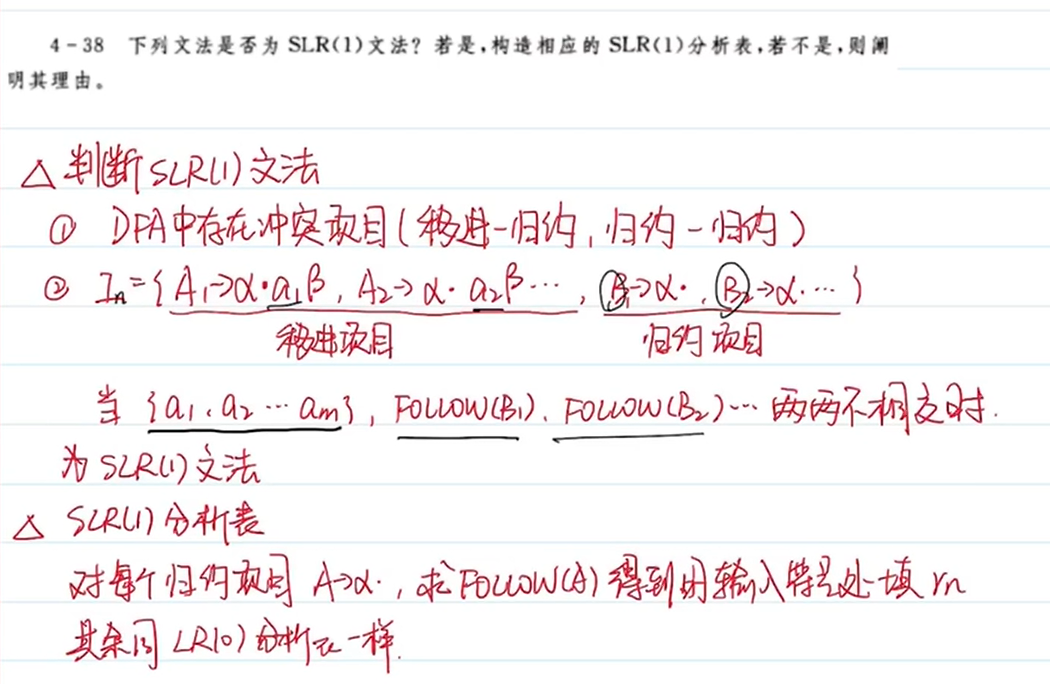 4-38 下列文法是否为 SLR(1)文法? 若是,构造相应的 SLR(1)分析表,若不是,则阐
明其理由。
△ 判断SLR(1)文法
① DFA中存在冲突项目(移进-归约,归约-归约)
② In={A₁→α·a₁β, A₂→α·a₂β…, B₁→α·, B₂→α·…}
移进项目 归约项目
当 {a₁,a₂…am}, FOLLOW(B₁), FOLLOW(B₂)…两两不相交时.
为SLR(1)文法
△ SLR(1)分析表
对每个归约项目 A→α·, 求FOLLOW(A)得到的输入符号处填 rn
其余同 LR(0)分析表一样.